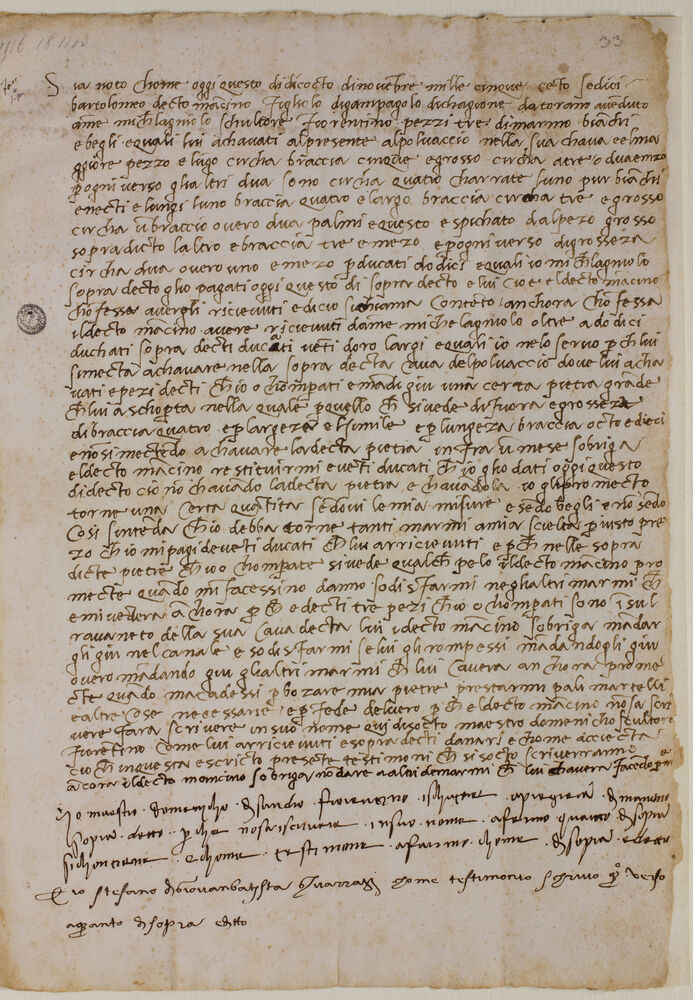 33
Sia noto chome oggi questo di diciocto dinove(m)bre mille cinque ce(n)to sedici
bartolomeo decto mancino figliolo digiampagolo dichagione da torano a ve(n)duto
a me mich(e)lagniolo schultore fiorentino pezzi tre dimarmo bianchi
e begli equali lui a chavati al presente al polvaccio nella sua chava e el ma
ggiore pezzo e lu(n)go circha braccia cinque e grosso circha a tre o dua e mezo
p(er) ogni verso gli altri dua sono circha quatro charrate l uno pur bianchi
e necti e lungi l uno braccia quatro e largo braccia circha tre e grosso
circha u(n) braccio overo dua palmi e questo e spichato dal pezo grosso
sopra dicto l altro e braccia tre e mezo e p(er) ogni verso di grosseza
circha dua overo uno e mezo p(er) ducati dodici e quali io mich(e)lagniolo
sopra decto gli o pagati oggi questo di sopra decto e lui cioe el decto mancino
cho(n)fessa avergli ricievuti e di cio si chiama co(n)te(n)to anchora cho(n)fessa
il decto ma(n)cino avere ricievuti da me michelagniolo oltre a dodici
duchati sopra decti ducati ve(n)ti d oro largi e quali io ne lo servo p(er)ch(e) lui
si mecta a chavare nella sopra decta cava del polvaccio dove lui a cha
vati e pezi decti ch(e) io o cho(m)pati e madi giu una certa pietra gra(n)de
ch(e) lui a schop(er)ta nella quale p(er) quello ch(e) si vede di fuora e grosseza
di braccia quatro e p(er) largeza e l simile e p(er) lungeza braccia octo e dieci
e no(n) si mecte(n)do a chavare la decta pietra infra u(n) mese s obriga
el decto mancino restituirmi e ve(n)ti ducati ch(e) io gli o dati oggi questo
di decto cio no(n) chava(n)do la decta pietra e chava(n)dola io gli promecto
torne una certa qua(n)tita se(n)dovi le mia misure e se(n)do begli e no(n) se(n)do
cosi s inte(n)da ch(e) io debba torne tanti marmi a mia scielta p(er) iusto pre
zo ch(e) io mi pagi de ve(n)ti ducati ch(e) lui a rricievuti e p(er)ch(e) nelle sopra
dicte pietre ch(e) io o cho(m)pate si vede qualch(e) pelo il decto mancino pro
mecte qua(n)do mi facessino danno sodisfarmi negli altri marmi ch(e)
e mi vedera a(n)chora p(er)ch(e) e decti tre pezi ch(e) io o cho(m)pati sono i(n) sul
ravaneto della sua cava decta lui i decto mancino s obriga ma(n)dar
gli giu nel canale e sodisfarmi se lui gli rompessi ma(n)da(n)dogli giu
overo ma(n)dando giu gli altri marmi ch(e) lui cavera anchora prome
cte qua(n)do m acadessi p(er) bozare mia pietre prestarmi pali martelli
e altre cose necessarie e p(er) fede del vero p(er)ch(e) el decto mancino no(n) sa scri
vere fara scrivere in suo nome qui di socto maestro domenicho scultore
fiorentino come lui a rricievuti e sopra decti danari e chome accecta
cio ch(e) in questa e scricto prese(n)te testimoni ch(e) si socto scriverranno e
a(n)cora il decto mancino s obriga no(n) dare a altri de marmi ch(e) lui chavera
Io maestro domenicho di sandro fiorentino ischultore
sopra detto p(er)che no(n) sa iscrivere in suo nome afermo qua(n)to di sopra
si chontiene e chome testimone afermo chome di sopra e detto
E io stefano di giovanbatista come testimonio scrivo
a qua(n)to di sopra e ditto